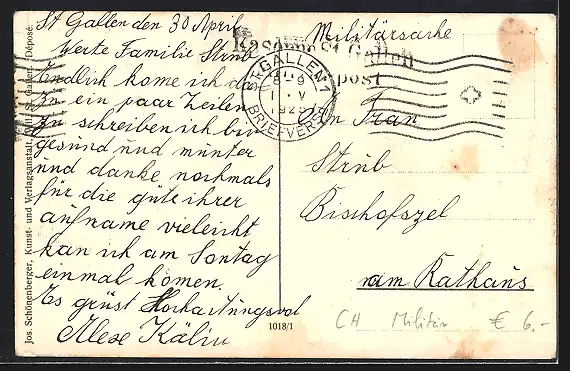 St Gallen den 30 April
Werte Familie Strub
Endlich kome ich da
zu ein paar Zeilen
zu schreiben ich bin
gesund und munter
und danke nochmals
für die güte ihrer
aufname vieleicht
kan ich am Sontag
einmal komen.
Es grüst Hochachtungsvol
Kälin
Militärsache
Kaserne St. Gallen
post
ST. GALLEN 1
1 . V
1925
BRIEFVERSAND
An Frau
Strub
Bischofszel
am Rathaus
1018/1
CH Militär € 6.-
Jos. Schönenberger, Kunst- und Verlagsanstalt, St. Gallen. Déposé.